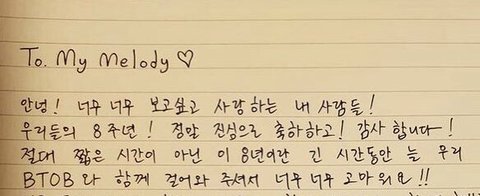 To. My Melody ♡
안녕! 너무 너무 보고싶고 사랑하는 내 사람들!
우리들의 8주년! 정말 진심으로 축하하고! 감사 합니다!
절대 짧은 시간이 아닌 이 8년이란 긴 시간동안 늘 우리
BTOB 와 함께 걸어와 주셔서 너무 너무 고마워요!!